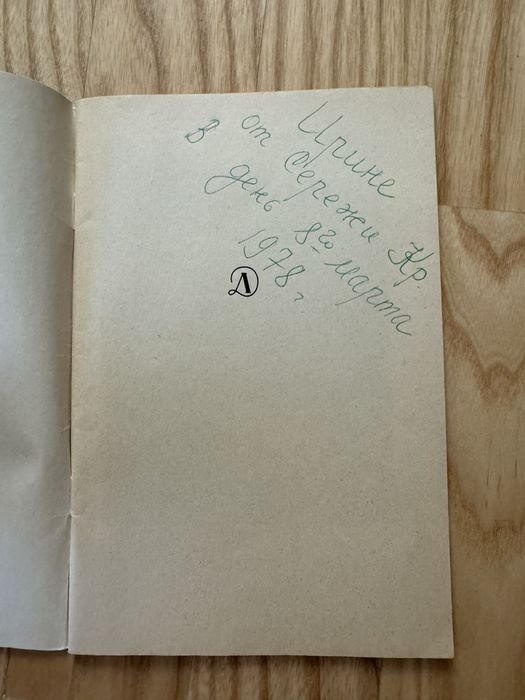 Ирине
от Сережи Кр.
В день 8го марта
1978 г.
Д